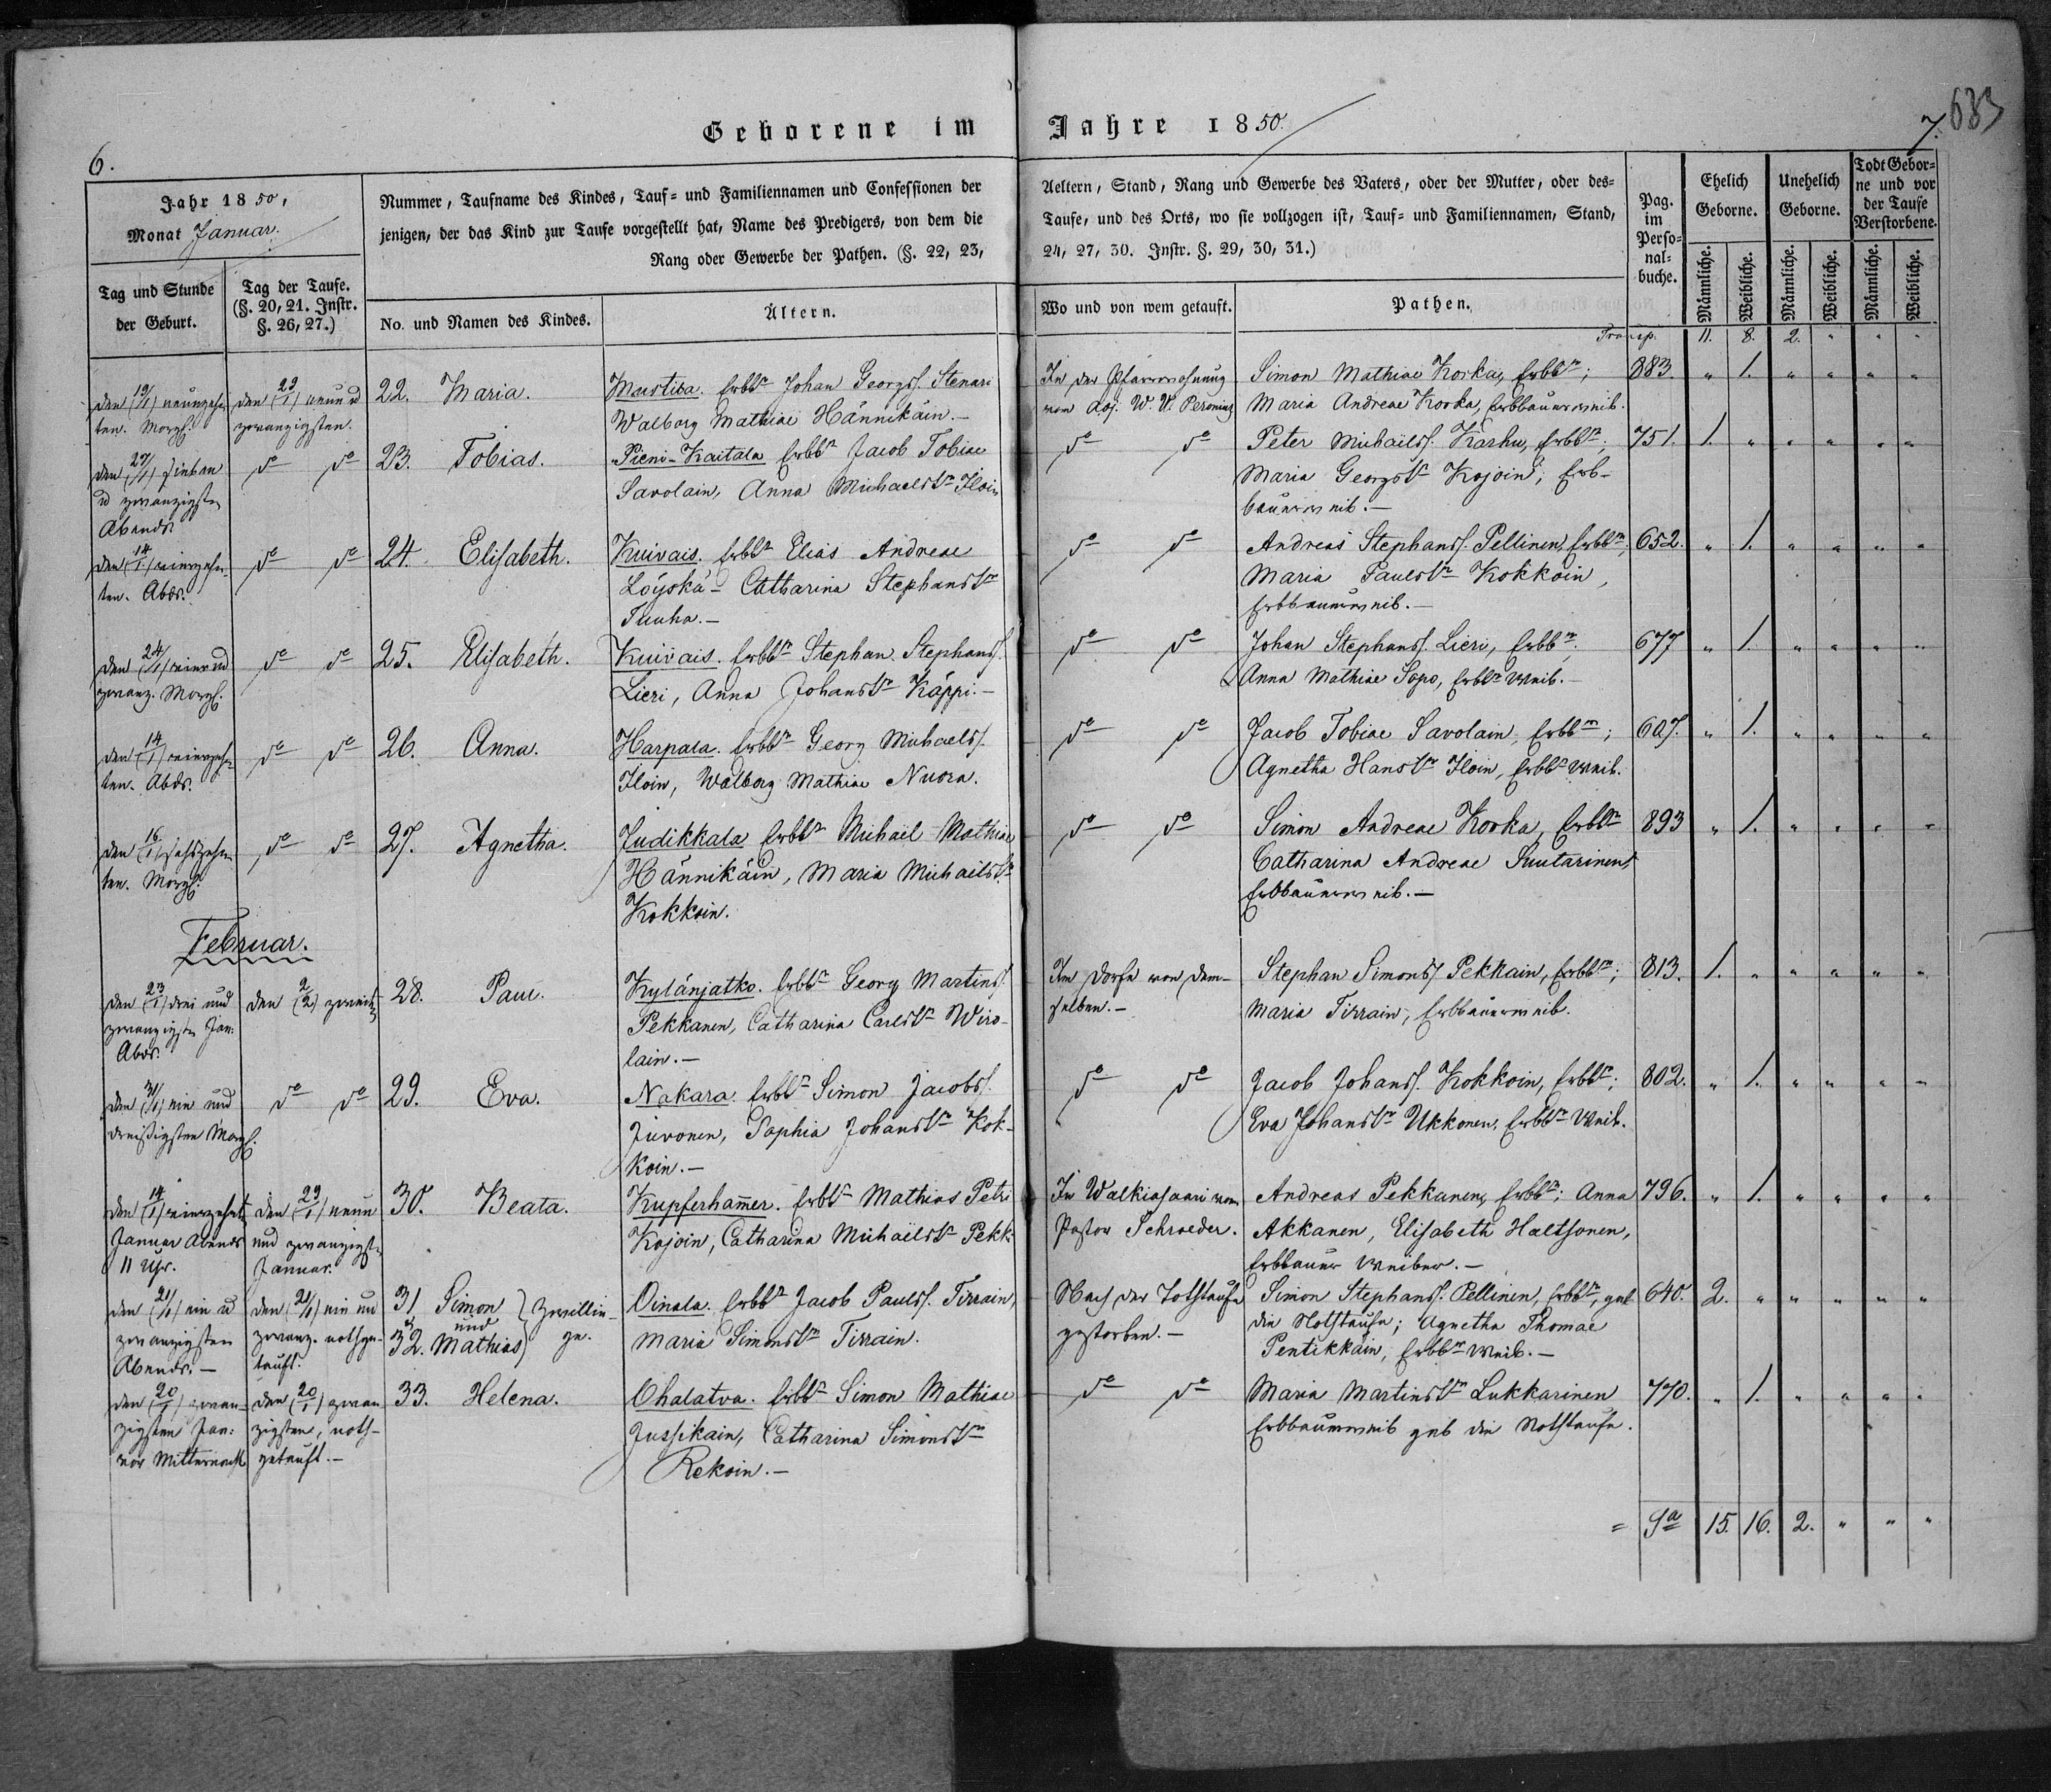 Geborene im Jahre 1850.
6.
7.
683
Jahr 1850,
Monat Januar.
Nummer, Taufname des Kindes, Tauf= und Familiennamen und Confessionen der Aeltern, Stand, Rang und Gewerbe des Vaters, oder der Mutter, oder des=
jenigen, der das Kind zur Taufe vorgestellt hat, Name des Predigers, von dem die Taufe, und des Orts, wo sie vollzogen ist, Tauf= und Familiennamen, Stand,
Rang oder Gewerbe der Pathen. (§. 22, 23, 24, 27, 30. Instr. §. 29, 30, 31.)
Pag.
im
Perso=
nal=
buche.
Ehelich
Geborne.
Unehelich
Geborne.
Todt Gebor=
ne und vor
der Taufe
Verstorbene.
Tag und Stunde
der Geburt.
Tag der Taufe.
(§. 20, 21. Instr.
§. 26, 27.)
No. und Namen des Kindes.
Ältern.
Wo und von wem getauft.
Pathen.
Männliche. Weibliche. Männliche. Weibliche. Männliche. Weibliche.
Transp. 11. 8. 2. " " "
den (19/1) neunzehn
ten. Morg.
den (29/1) neun u
zwanzigsten.
22. Maria.
Erbb. Johan Georgs. Stenari
Walborg Mathiae Hännikäin.—
In der Pfarrwohnung
von Adj. W. U.
Simon Mathiae Korka, Erbb;
Maria Andreae Korka, Erbbauerweib.
883. " 1. " " " "
den (27/1) sieben
u zwanzigsten
Abends.
do do
23. Tobias.
Pieni-Kaitala Erbb Jacob Tobiae
Savolain, Anna Michaelstr Iloin
do do
Peter Michaels. Karhu, Erbb;
Maria Georgstr Kojoin, Erb-
bauerweib.—
751. 1. " " " " "
den (14/1) vierzehn
ten. Abds.
do do
24. Elisabeth.
Kuivais. Erbb Elias Andreae
Löyskä— Catharina Stephanstr
Tuuha.—
do do
Andreas Stephans. Pellinen, Erbb,
Maria Paulstr Kokkoin,
Erbbauerweib.—
652. " 1. " " " "
den (24/1) vier u
zwanz. Morg.
do do
25. Elisabeth.
Kuivais. Erbb Stephan Stephans.
Lieri, Anna Johanstr Käppi.—
do do
Johan Stephans. Lieri, Erbb;
Anna Mathiae Sopo, Erbb Weib.—
677 " 1. " " " "
den (14/1) vierzehn
ten. Abds.
do do
26. Anna.
Harpala. Erbb Georg Michaels.
Iloin, Walborg Mathiae Nuora.
do do
Jacob Tobiae Savolain, Erbb;
Agnetha Hanstr Iloin, Erbb Weib.
607. " 1. " " " "
den (16/1) sechszehn
ten. Morg.
do do
27. Agnetha.
Judikkala Erbb Michail Mathiae
Hännikäin, Maria Michailstr
Kokkoin.
do do
Simon Andreae Korka, Erbb
Catharina Andreae Suutarinen,
Erbbauerweib.—
893 " 1. " " " "
Februar.
den (23/1) drei und
zwanzigsten Jan.
Abds.
den (2/2) zweiten
28. Paul.
Kylänjatko. Erbb Georg Martins.
Pekkanen, Catharina Carlstr Wiro-
lain.—
Im Dorfe von dem-
selben.—
Stephan Simons. Pekkain, Erbb;
Maria Tirrain, Erbbauerweib.
813. 1. " " " " "
den (31/1) ein und
dreißigsten Morg.
do do
29. Eva.
Nakara. Erbb Simon Jacobs.
Juvonen, Sophia Johanstr Kok-
koin.—
do do
Jacob Johans. Kokkoin, Erbb;
Eva Johanstr Ukkonen, Erbb Weib.
802. " 1. " " " "
den (14/1) vierzehnt
Januar Abends
11 Uhr.
den (29/1) neun
und zwanzigst
Januar.
30. Beata.
Kupferham̄er. Erbb Mathias Petri
Kojoin, Catharina Michailstr Pekk:
In Walkiasaari vom
Pastor Schroeder.
Andreas Pekkanen, Erbb; Anna
Akkanen, Elisabeth Haltsonen,
Erbbauer Weiber.—
796. " 1. " " " "
den (21/1) ein u
zwanzigsten
Abends.—
den (21/1) ein un
zwanz. nothge-
tauft.
31 Simon
und
32. Mathias } Zwillin-
ge.
Oinala. Erbb Jacob Pauls. Tirrain,
Maria Simonstr Tirrain.
Nach der Nothtaufe
gestorben.—
Simon Stephans. Pellinen, Erbb, gab
die Nothtaufe; Agnetha Thomae
Pentikkäin, Erbb Weib.—
640. 2. " " " " "
den (20/1) zwan-
zigsten Jan:
vor Mitternacht
den (20/1) zwan
zigsten, noth-
getauft.—
33. Helena.
Ohalatva. Erbb Simon Mathiae
Jussikain, Catharina Simonstr
Rekoin.—
do do
Maria Martinstr Lukkarinen
Erbbauerweib gab die Nothtaufe.
770. " 1. " " " "
= Sa 15. 16. 2. " " "